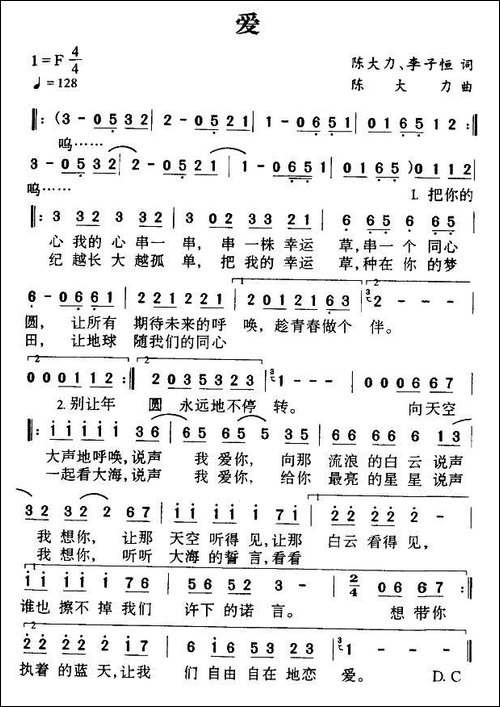 爱
1=F 4/4
陈大力、李子恒 词
♩=128
陈大力曲
‖: (3 - 0 5 3 2 | 2 - 0 5 3 2 1 | 1 - 0 6 5 1 | 0 1 6 5 1 2 :‖
呜……
3 - 0 5 3 2 | 2 - 0 5 3 2 1 | 1 - 0 6 5 1 | 0 1 6 5 ) 0 1 1 2
呜…… 1. 把你的
‖: 3 3 2 3 3 2 | 3 0 2 3 3 2 1 | 6 6 6 5 6 6 5
心我的心串一串,串一株幸运草,串一个同心
纪越长大越孤单,把我的幸运草,种在你的梦
6 - 0 6 6 1 | 2 2 1 2 2 1 | 2 0 1 2 1 6 3 | 2 - -
圆,让所有期待未来的呼唤,趁青春做个伴。
田,让地球随我们的同心
0 0 0 1 1 2 :‖ 2 0 3 5 3 2 3 | 1 - - | 0 0 0 6 6 7
2. 别让年圆永远地不停转。向天空
‖: i i i i i 3 6 | 5 6 5 6 5 3 5 | 6 6 6 6 6 1 3
大声地呼唤,说声我爱你,向那流浪的白云说声
一起看大海,说声我爱你,给你最亮的星星说声
3 2 3 2 2 6 7 | i i i i 1 7 | 2 2 2 2 2 -
我想你,让那天空听得见,让那白云看得见,
我想你,听听大海的誓言,看看
i i i i i 7 6 | 5 6 5 2 3 - | 2/4 0 6 6 7 :‖
谁也擦不掉我们许下的诺言。想带你
2 2 2 2 2 1 7 | 6 5 6 5 6 1 3 | 1 - - ‖
执着的蓝天,让我们自由自在地恋爱。D.C